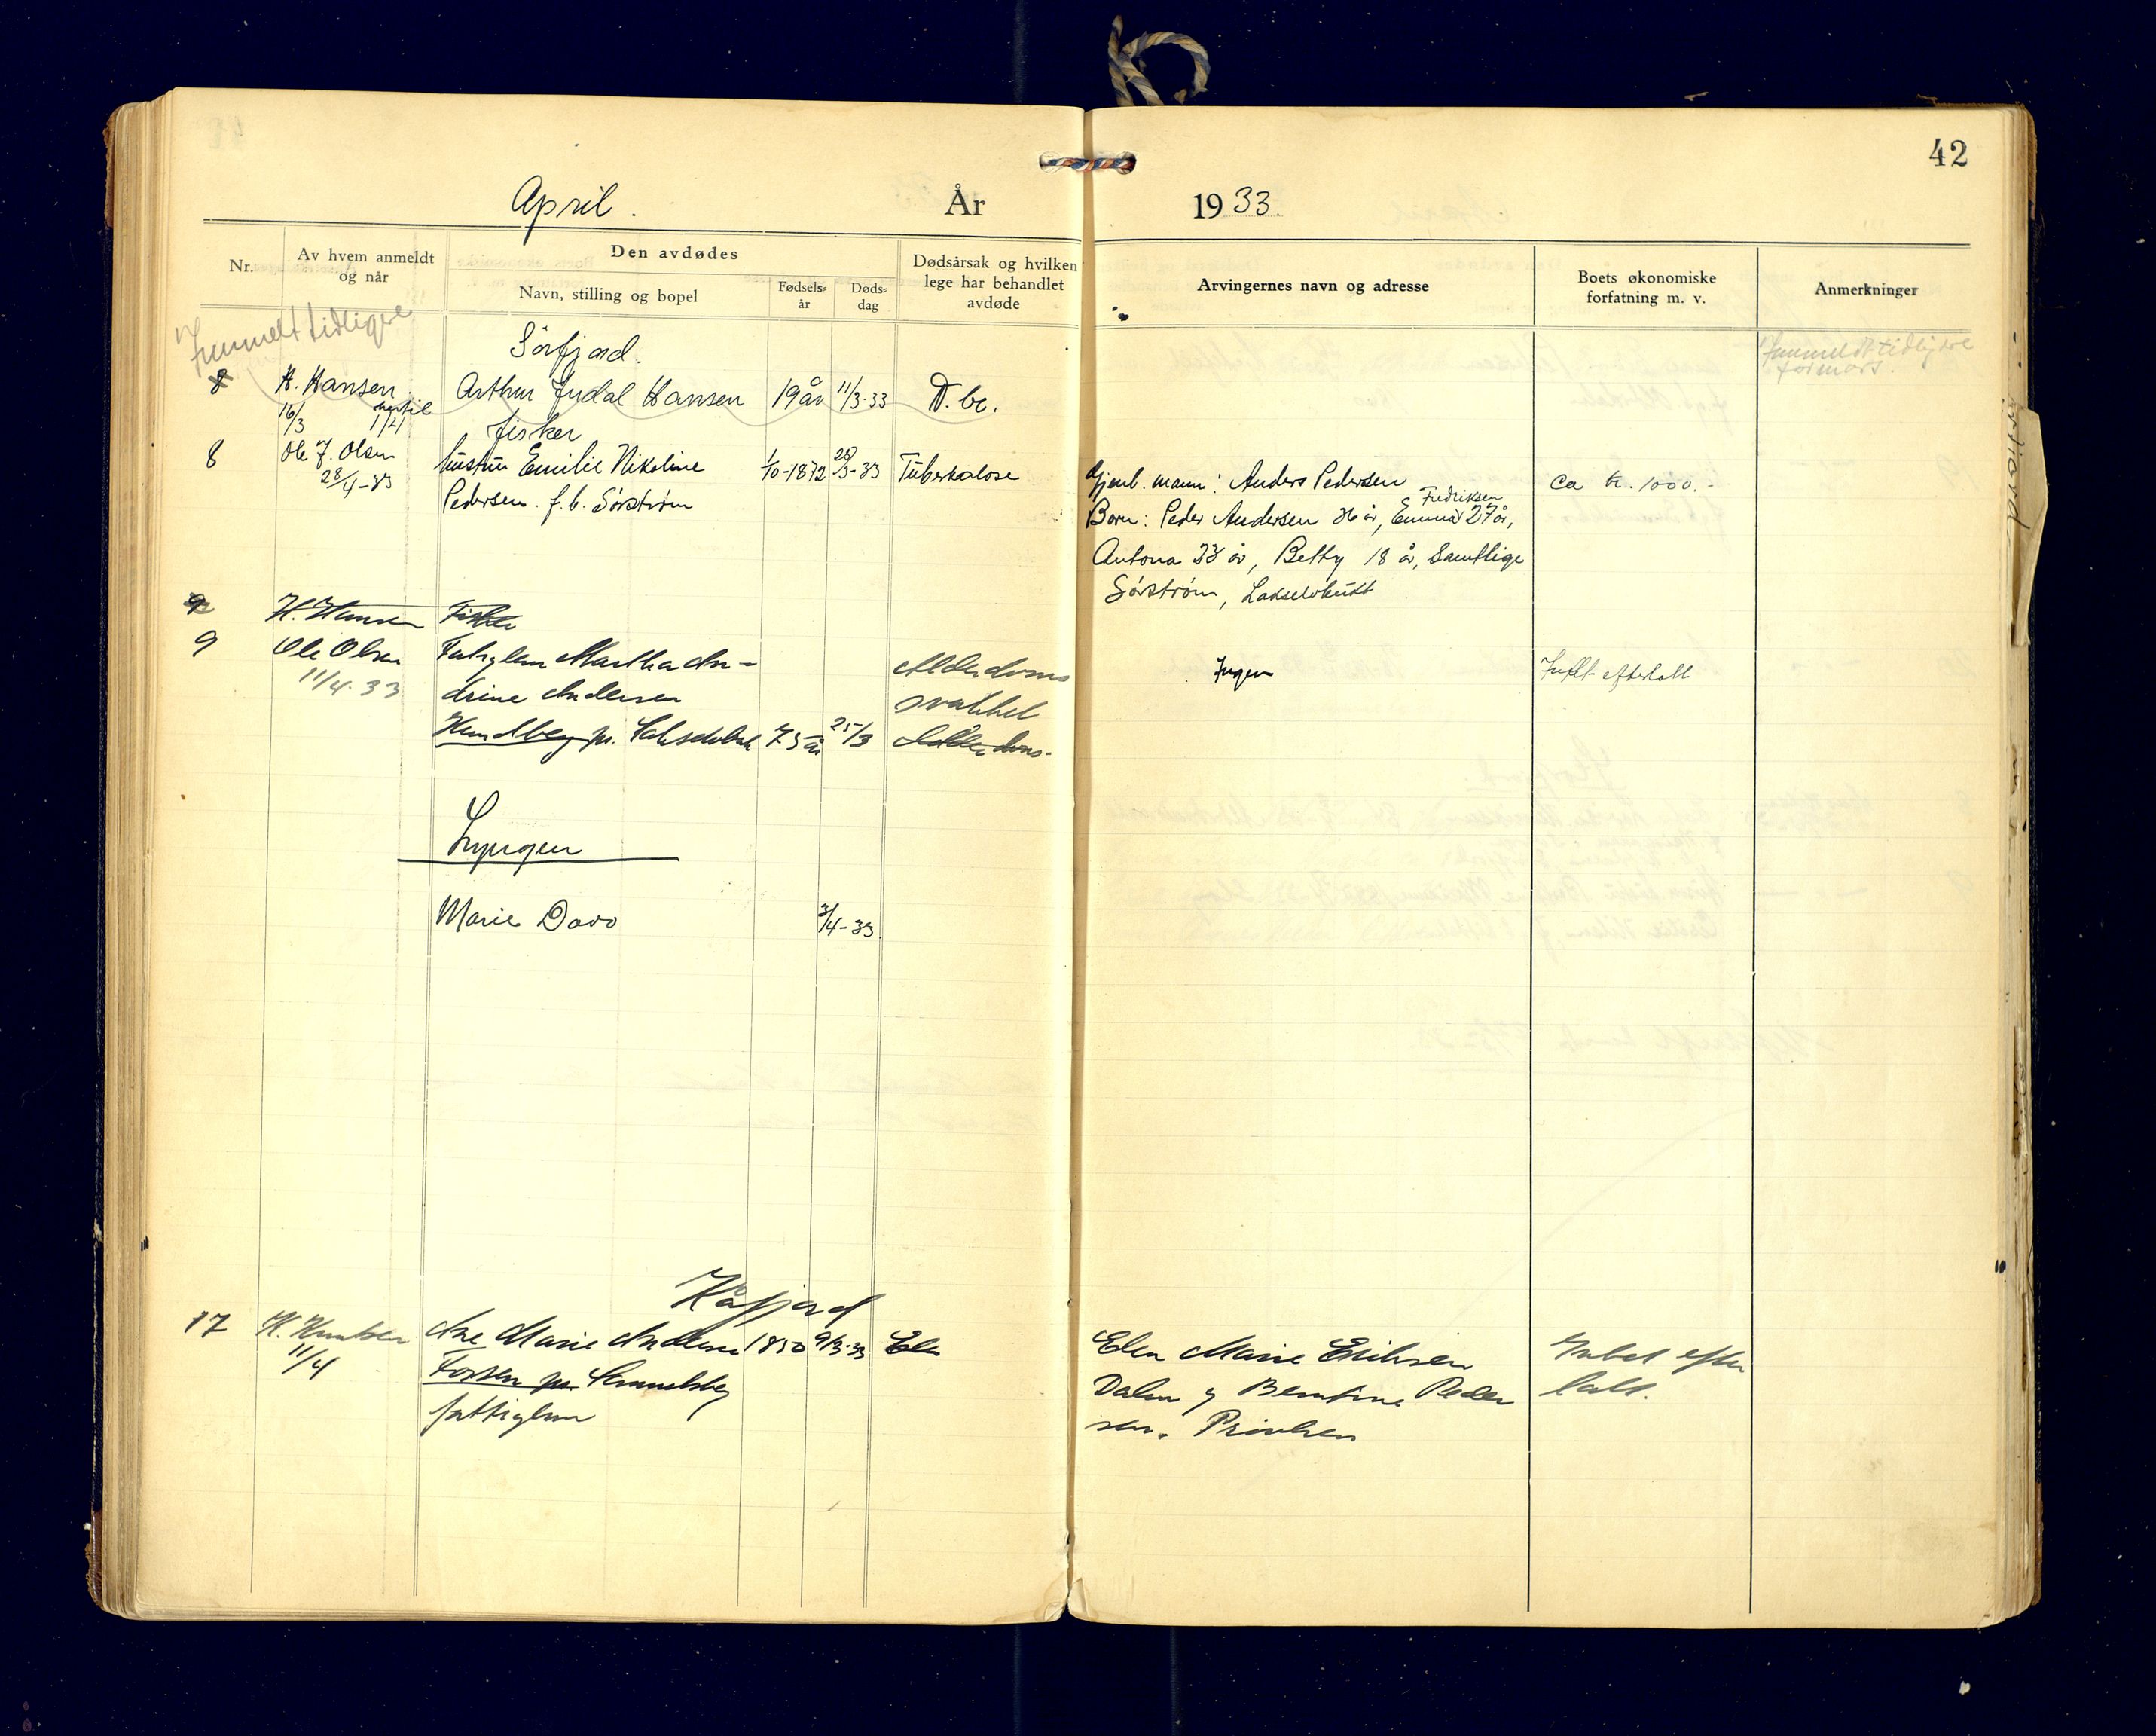 42
April. År 1933.
Nr. Av hvem anmeldt og når Den avdødes Navn, stilling og bopel Fødsels-år Døds-dag Dødsårsak og hvilken lege har behandlet avdøde Arvingernes navn og adresse Boets økonomiske forfatning m. v. Anmerkninger
Innmeldt tidligere
Sörfjord.
Innmeldt tidligere
for mars.
8 H. Hansen Arthur Hansen 19 år 11/3-33 T. bc.
16/3
fisker
8 Ole J. Olsen hustru Emilie Nikoline 1/10-1872 /3-33 Tuberkulose Gjenl. mann: Anders Pedersen Ca kr. 1000.-
28/4-33 Pedersen f. b. Sørstrøm Barn: Peder Andersen 36 år, Emma Fredriksen 27 år,
Antona 23 år, Betty 18 år, Samtlige
Sørstrøm, Lakselvbukt
9 H. Hansen Fisker
9 Ole Olsen Fattiglem Martha An- Alderdoms Ingen Intet efterlatt
11/4.33 drine Andersen svakhet
Hundberg pr. Lakselvbuk 75 år 25/3 Alderdoms-
Lyngen
Marie Davo /4-33
Kåfjord
17 K. Knutsen Ane Marie Andersen 1850 9/3.33 Elen Elen Marie Eriksen Intet efter
11/4 Fossen pr. Samuelsberg Dalen og Berntine Peder latt.
fattiglem sen.